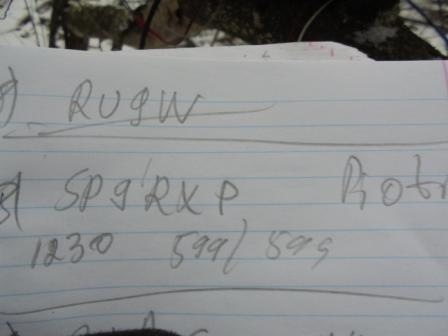 RU9W
SP9RXP Piotr
1230 599/599